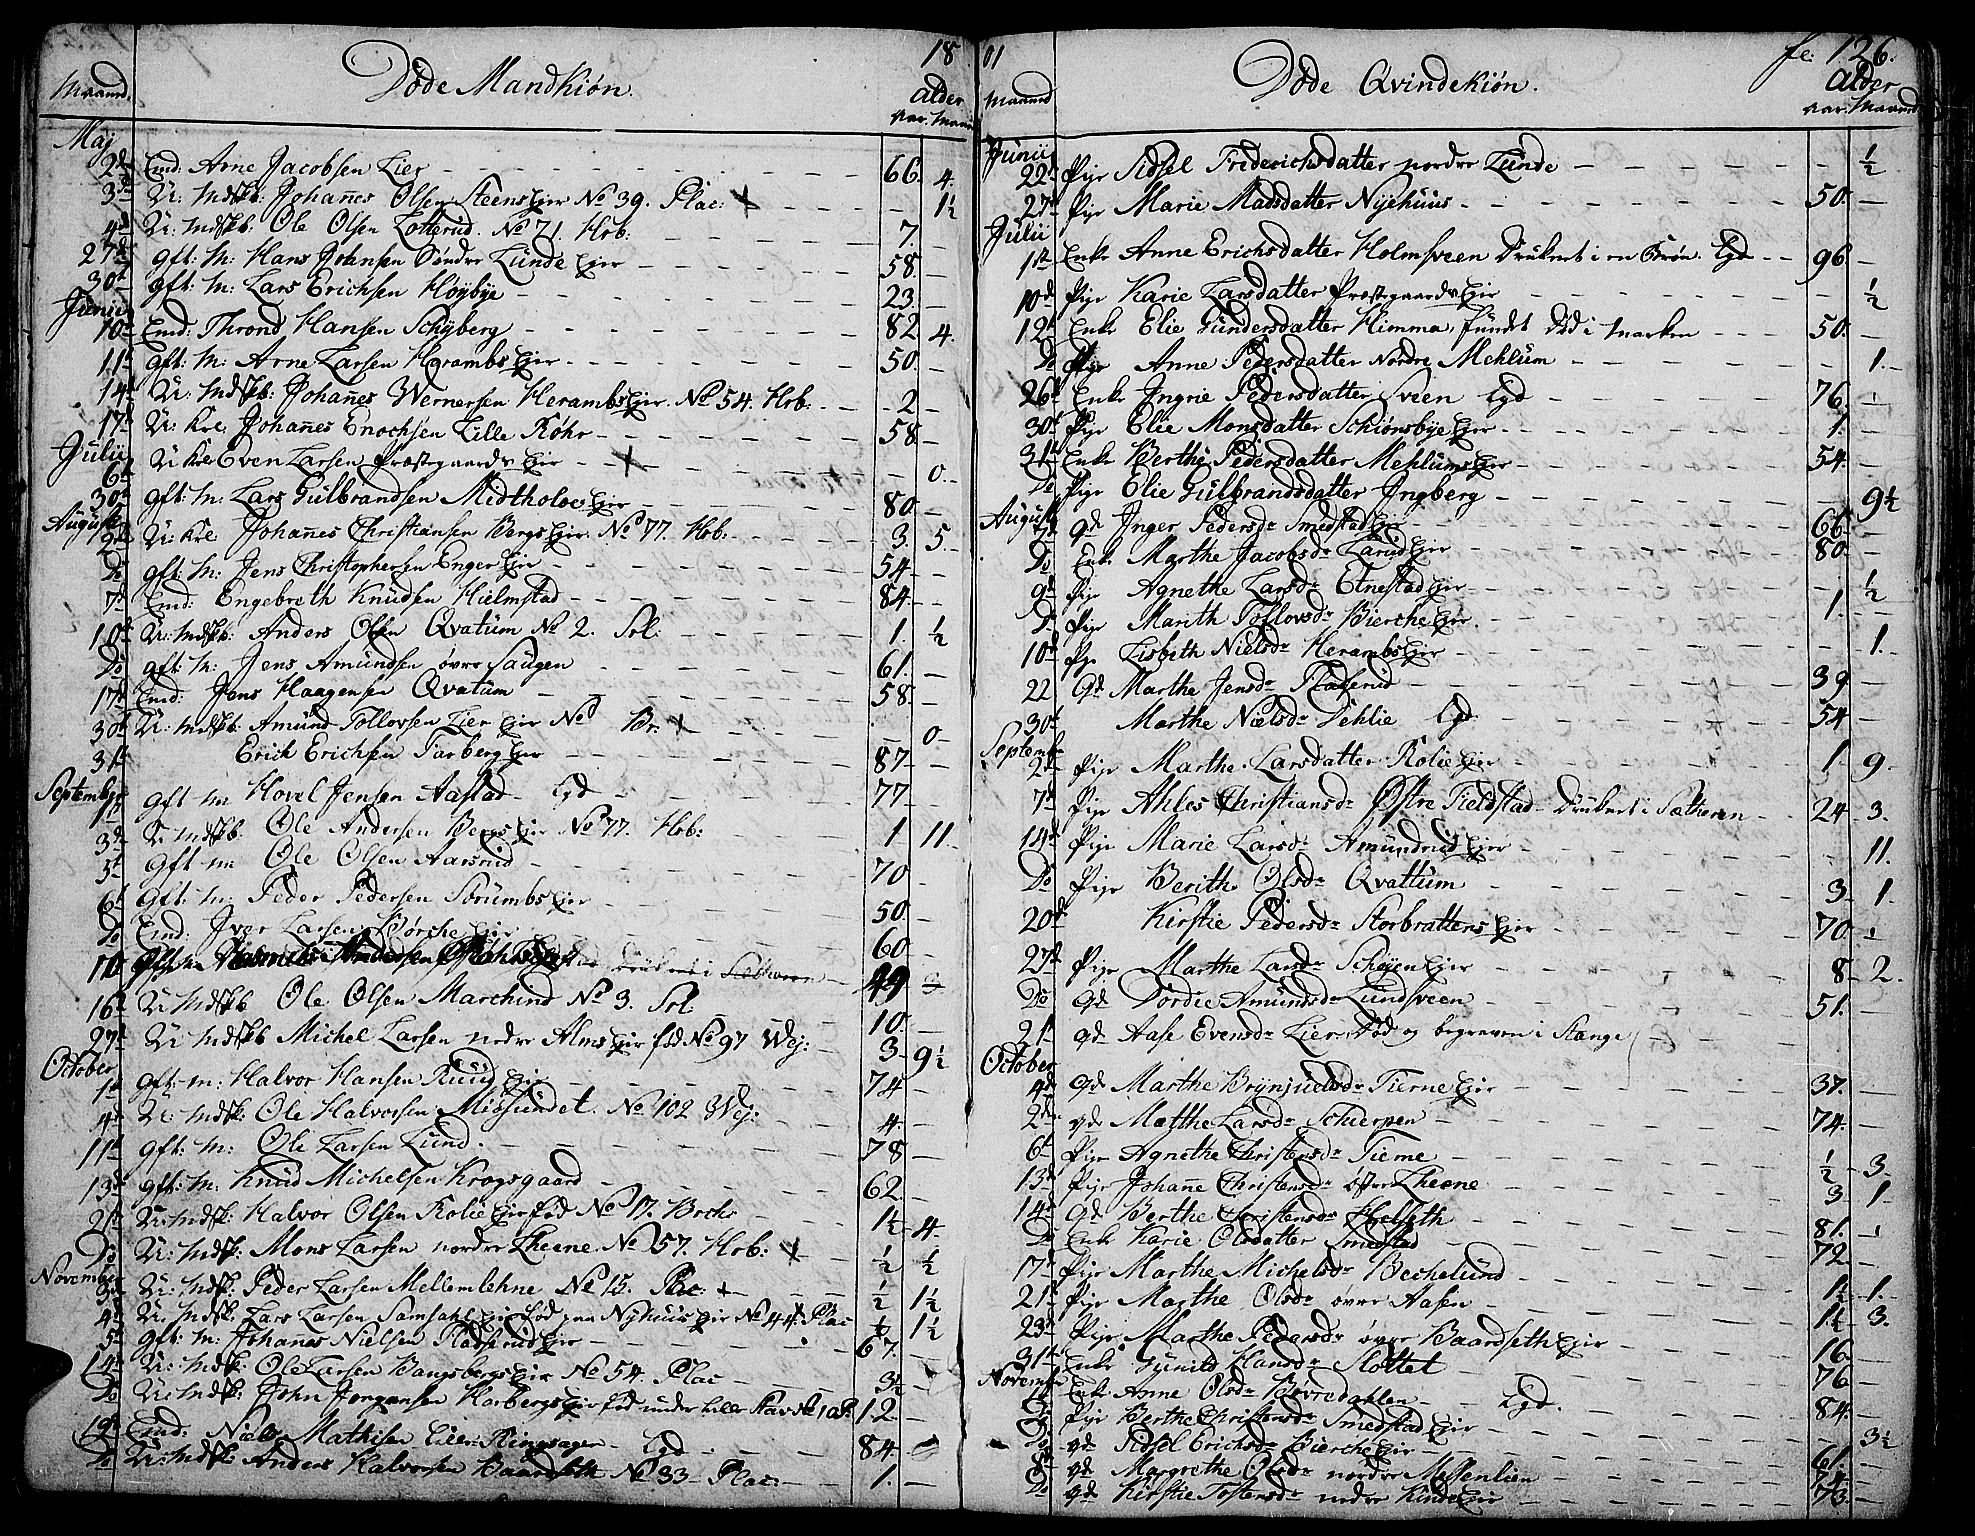 18
Døde Mandkiøn.
Maaned
Alder
Aar. Maan
Maj
2d Emd: Arne Jacobsen Lier 66. 4.
3d U: Mdsk: Johañes Olsen Steens Eier No 39. Plac: — 1½
4d U: Mdskb: Ole Olsen Lotterud. No 71. Hrb: 7. —
27d gft: M: Hans Johnsen Søndre Lunde Eier 58. —
30t gft: M: Lars Erichsen Høybye 23. —
Junii
10d Emd: Thrond Hansen Schyberg 82 4.
11t gft: M: Arne Larsen Herambs Eier 50. —
14d U: Mdskb: Johañes Wernersen Herambs Eier. No 54. Hrb: 2 —
17d U: Kre Johañes Enochsen Lille Køhr 58 —
Julii
6t U: Kre Even Larsen Præstegaards Eier 0. —
30t gft: M: Lars Gulbrandsen Midtholoe Eier 80. —
Augusti
2d U: Kre Johañes Christiansen Bergs Eier. No 77. Hrb: 3. 5.
Do gft: M: Jens Christophersen Enger Eie 54. —
7d Emd: Engebreth Knudsen Hielmstad 84. —
10d U: Mdskb: Anders Olsen Qvatum No 2. Srl: 1. ½
Do gft: M: Jens Amundsen øvre Saugen 61. —
17d Emd: Jens Haagensen Qvatum 58. —
30t U: Mdskb: Amund Tollovsen Lier Eier No Br: 0 —
31t Erich Erichsen Farberg Eier 87 —
September
1t gft M Hovel Jensen Aastad Lgd 77 —
3d U: Mdskb. Ole Andersen Bergs Eier No 77. Hrb: 1. 11.
5t gft M: Ole Olsen Aasrud 70 —
6t gft: M: Peder Pedersen Sørumbs Eier 50. —
Do Emd: Iver Larsen Børche Eier 60 —
10 gft: M: Andersen i 49 3
16d U: Mdskb Ole Olsen Marchind No 3. Srl 10. —
27d U: Mdskb Michel Larsen nedre Alms Eier fød No 97 Wej: 3 9½
October
1t gft: M: Halvor Hansen Ruud Eier 74 —
4d U: Mdsk: Ole Halvorsen Midsundet. No 102 Wej: 4. —
11t gft: M: Ole Larsen Lund. 78 —
13d gft: M: Knud Michelsen Krogsgaard 62. —
21t U: Mdsk: Halvor Olsen Rolie Eier fød No 17. Brche 1½ 4.
Do U: Mdsk: Mons Larsen nordre Theene. No 57. Hrb: ½ ½
November
3d U: Mdsk: Peder Larsen Mellemlehne No 15. Plac: ½ 1½
4d U: Mdsk: Lars Larsen Samsahl Eier fød paa Nyhuus Eier No 44. Plac ½ 1½
5t gft: M: Johañes Nielsen Fladserud Eier 67. —
14d U: Mdsk: Ole Larsen Bangsbergs Eier No 54. Plac 3½ —
Do U: Mdsk: John Jørgensen Harbergs Eier fød under Lille Stav 12 —
19d Emd: Niels Mathisen Lier Ringsagen Lgd 84. —
Do U: Mdsk: Anders Halvorsen Baardseth No 33 Plac: 1. —
01
fo: 126.
Døde Qvindekiøn.
Maaned
Alder
Aar. Maaned
Junii
22d Pige Sidsel Frederichsdatter nordre Lunde — ½
27d Pige Marie Madsdatter Nyehuus 50. —
Julii
1ste Enke Anne Erichsdatter Holmsveen Druknet i en Brøn. Lgd 96 —
10d Pige Karie Larsdatter Præstegaards Eier — ½
12t Enke Elie Gundersdatter Himma, fundet død i Marken 50. —
Do Pige Anne Pedersdatter Nordre Mehlum — 1.
26d Enke Ingrie Pedersdatter Sveen Lgd 76. —
30t Pige Elie Monsdatter Schiønsbye Eier 1. —
31t Enke Berthe Pedersdatter Mehlums Eier 54. —
Do Pige Elie Gulbrandsdatter Ingberg — 9½
Augusti
7d gd Inger Pedersdr Smedstad Eier 66 —
Do Enke Marthe Jacobsdr Larud Eier 80 —
9d Pige Agnethe Larsdr Etnestad Eier — ½
D Pige Marith Tollovsdr Bierche Eier. 1 —
10d Pige Lisbeth Nielsdr Herambs Eier — 1.
22 Gd Marthe Jensdr Fladserud 39 —
30t Marthe Nielsdr Dehlie Lgd 54 —
September
2d Pige Marthe Larsdatter Rolie Eier 1. 9.
7d Pige Ahles Christiansdr Østre Fieldstad Druknet i Sætteren 24 3.
14d Pige Marie Larsdr Amundrud Eier — 11.
Do Pige Berithe Olsdr Qvattum 3 1.
20d Kirstie Pedersdr Storbrattens Eier 70. —
27d Pige Marthe Larsdr Schøyen Eier 8 2.
Do gd Dordie Amundsdr Lundsveen 51. —
21t gd Aase Evensdr Lier, død og begraven i Stange —
October
4d gd Marthe Brynjuelsdr Tierne Eier 37. —
2d gd Mætthe Larsdr Schierpen 74. —
6t Pige Agnethe Christensdr Tieme ½ 3.
13d Pige Johañe Christensdr østre Theene 3 1.
14d gd Berthe Christensdr Helseth 81. —
Do Enke Karie Olsdatter Smedstad 72 —
17d Pige Marthe Michelsdr Bechelund — —
21t Pige Marthe Olsdr øvre Aasen 1½ 1.
23d Pige Marthe Pedersdr øvre Baardseth Eier 1½ 3.
31t Enke Gunild Hansdr Slottet 16 —
November
Enke Anne Olsdr Bøvredahlen Lgd. 76 —
Do Pige Berthe Christensdr Smedstad Eier 84. —
Do gd Sidsel Erichsdr Bierche Eier — 3½
8d gd Margrethe Olsdr nordre Messenlien 61. —
Do gd Kirstie Tostensdr nedre Kinde Eier 73. —